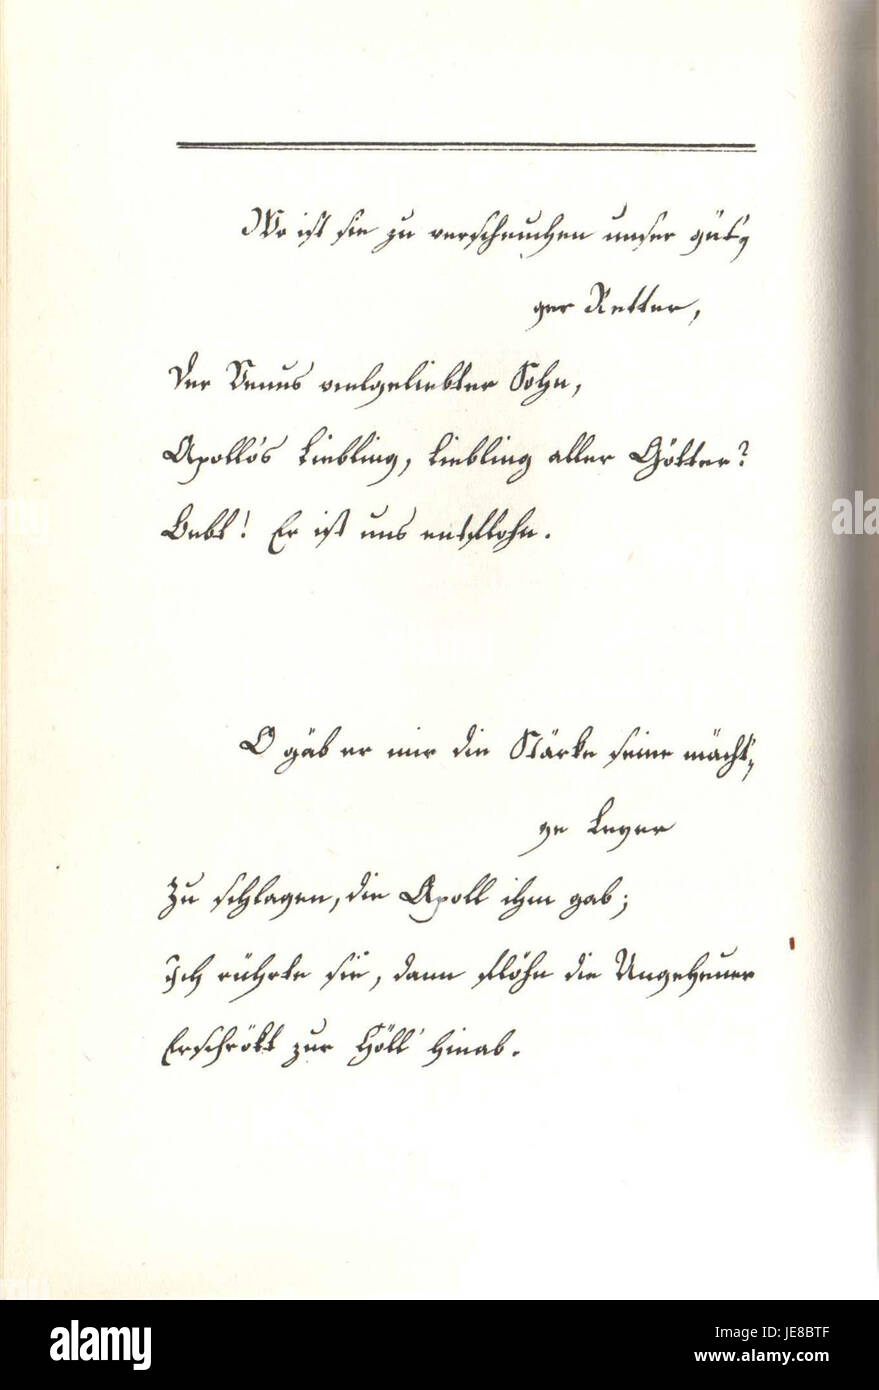 Wo ist sie zu verscheuchen unser güt'-
ger Retter,
Der Venus vielgeliebter Sohn,
Apollo's Liebling, Liebling aller Götter?
Bebt! Er ist uns entflohn.
O gäb er mir die Stärke seine mächt'-
ge Leyer
Zu schlagen, die Apoll ihm gab;
Ich rührte sie, dann flöhn die Ungeheuer
Erschrökt zur Höll' hinab.
alamy
Image ID: JE8BTF
www.alamy.com